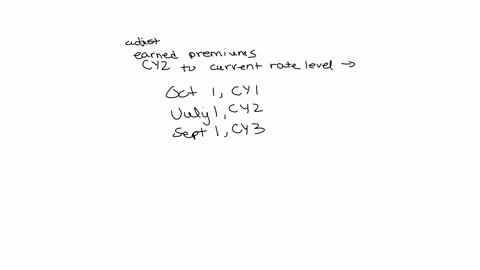 adjust
earned premiums
CY2 to current rate level →
Oct 1, CY1
July 1, CY2
Sept 1, CY3